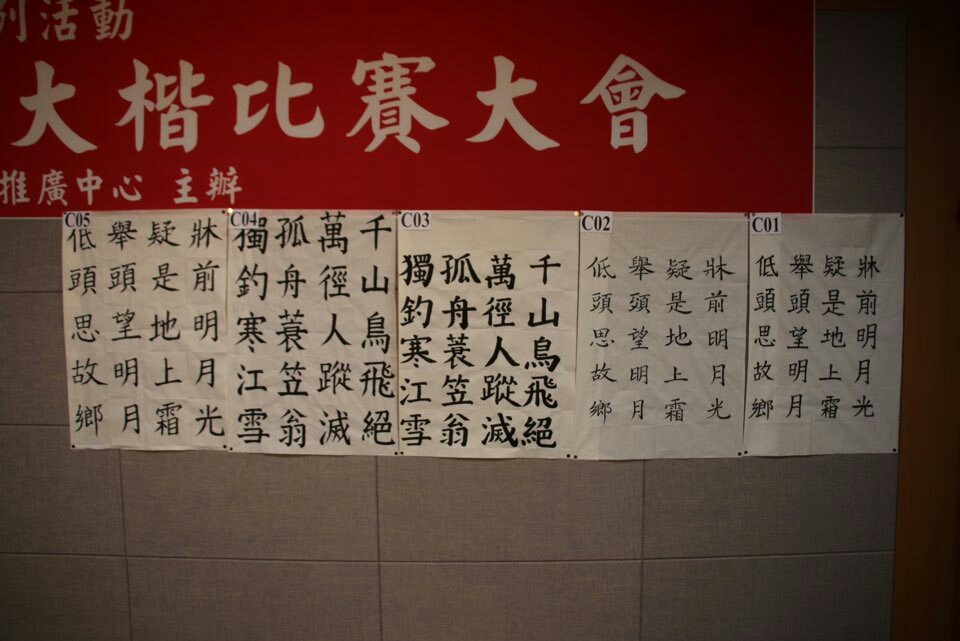 列活動
大楷比賽大會
推廣中心 主辦
C01
牀前明月光
疑是地上霜
舉頭望明月
低頭思故鄉
C02
牀前明月光
疑是地上霜
舉頭望明月
低頭思故鄉
C03
千山鳥飛絕
萬徑人蹤滅
孤舟蓑笠翁
獨釣寒江雪
C04
千山鳥飛絕
萬徑人蹤滅
孤舟蓑笠翁
獨釣寒江雪
C05
牀前明月光
疑是地上霜
舉頭望明月
低頭思故鄉